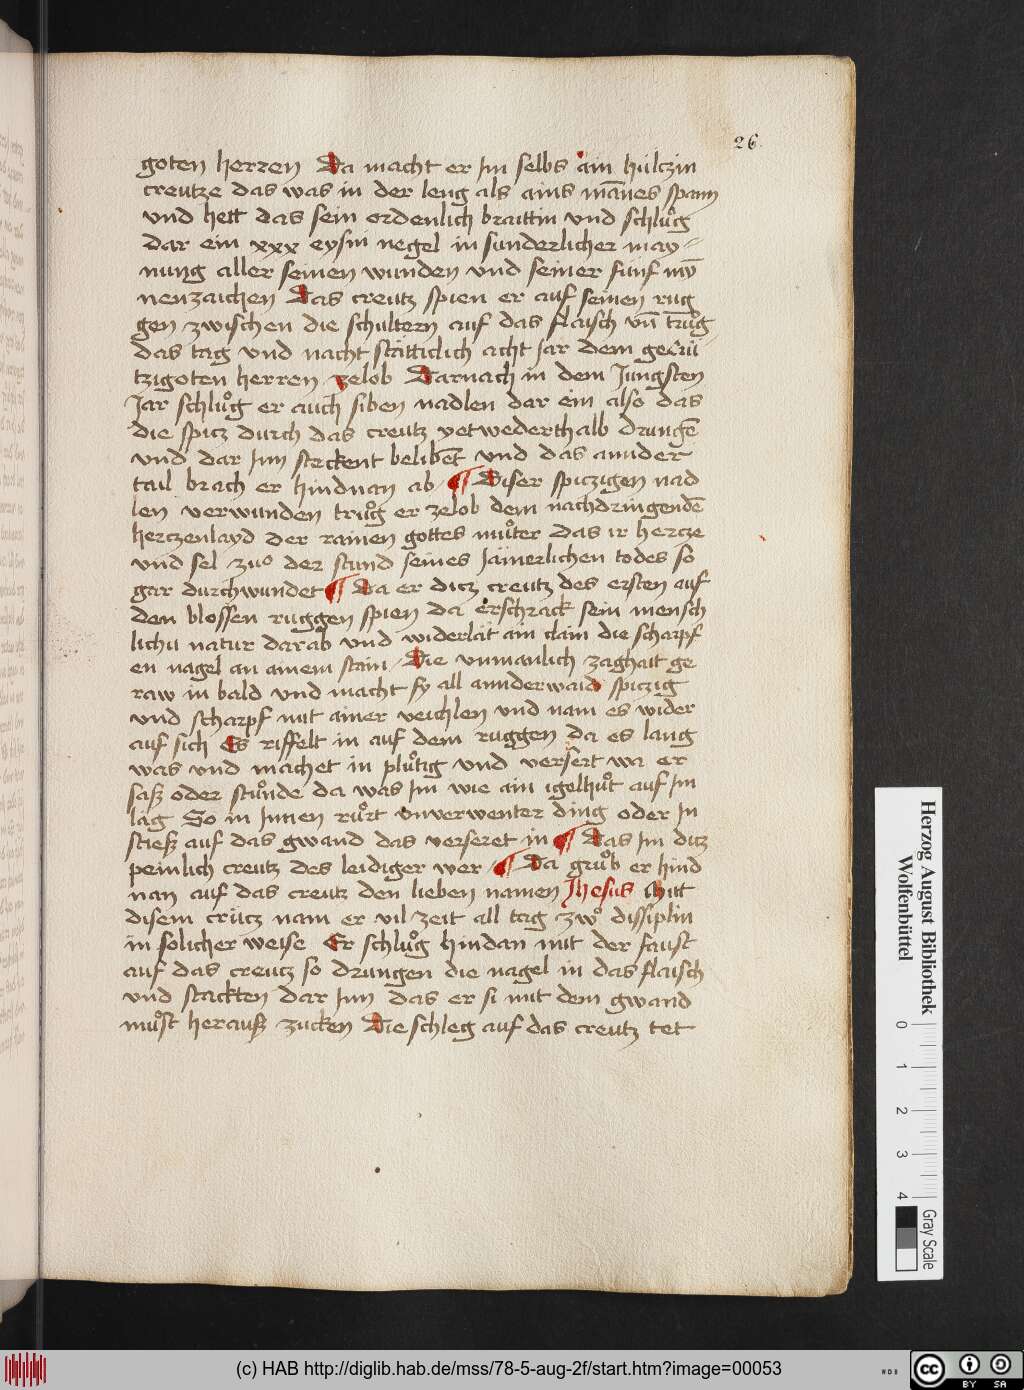 26.
goten herren Da macht er jm selbs ain hültzin
creutze das was in der leng als ains mānes spann
vnd hett das sein ordenlich braittin vnd schlůg
dar ein xxx eysni negel in sunderlicher may-
nung aller seinen wunden vnd seiner fünf my̅
nenzaichen Das creutz spien er auf seinen rug
gen zwischen die schultern auf das flaisch vn̄ trůg
das tag vnd nacht stätticlich acht jar dem gecrü-
tzigoten herren zelob Darnach in dem jungsten
Jar schlůg er auch siben nadlen dar ein also das
die spicz durch das creutz yetwederthalb drungē
vnd dar jnn steckent belibēt vnd das annder
tail brach er hindnan ab ¶ Diser spiczigen nad
len verwunden trůg er zelob dem nachdringendē
herczenlayd der rainen gottes můter das ir hercze
vnd sel zuo der stund seines jämerlichen todes so
gar durchwundet ¶ Da er dicz creutz des ersten auf
den blossen ruggen spien da erschrack sein mensch
lichu natur darab vnd widerlät ain clain die scharpf
en nagel an ainem stain Die vnmanlich zaghait ge
raw in bald vnd macht sy all annderwaid spiczig
vnd scharpf mit ainer veichlen vnd nam es wider
auf sich Es riffelt in auf dem ruggen da es lang
was vnd machet in plůtig vnd versert wa er
saß oder stůnde da was jm wie ain igelhůt auf jm
läg So in jnnen růrt vnverwenter ding oder jn
stieß auf das gwand das verseret in ¶ Das jm dicz
peinlich creutz des leidiger wer ¶ Da grůb er hind
nan auf das creutz den lieben namen Jhesus Mitt
disem crücz nam er vil zeit all tag zwo dissiplin
in solicher weise Er schlůg hindan mit der faust
auf das creutz so drungen die nagel in das flaisch
vnd stackten dar jnn das er si mit dem gwand
můst herauß zucken Die schleg auf das creutz tet
Herzog August Bibliothek
Wolfenbüttel
0 1 2 3 4
Gray Scale
(c) HAB http://diglib.hab.de/mss/78-5-aug-2f/start.htm?image=00053
WDB
cc BY SA